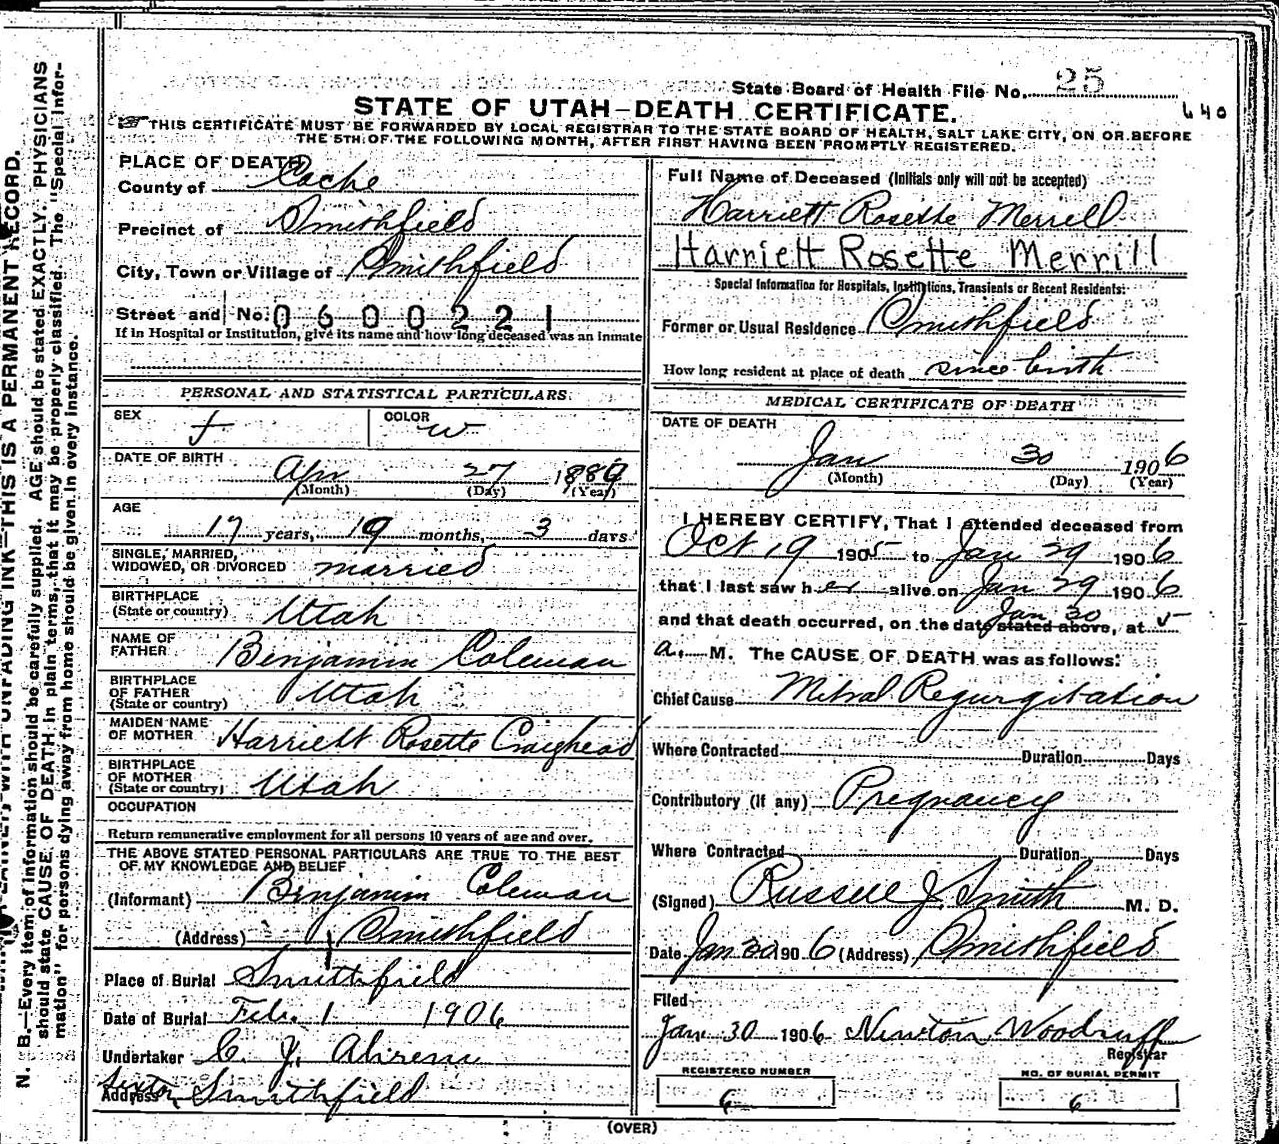 State Board of Health File No. 25
640
STATE OF UTAH—DEATH CERTIFICATE.
THIS CERTIFICATE MUST BE FORWARDED BY LOCAL REGISTRAR TO THE STATE BOARD OF HEALTH, SALT LAKE CITY, ON OR BEFORE
THE 5TH OF THE FOLLOWING MONTH, AFTER FIRST HAVING BEEN PROMPTLY REGISTERED.
PLACE OF DEATH
County of Cache
Precinct of Smithfield
City, Town or Village of Smithfield
Street and No. 0600221
If in Hospital or Institution, give its name and how long deceased was an inmate
PERSONAL AND STATISTICAL PARTICULARS.
SEX f COLOR w
DATE OF BIRTH Apr 27 1889
(Month) (Day) (Year)
AGE
17 years, 19 months, 3 days
SINGLE, MARRIED,
WIDOWED, OR DIVORCED married
BIRTHPLACE
(State or country) Utah
NAME OF
FATHER Benjamin Coleman
BIRTHPLACE
OF FATHER
(State or country) Utah
MAIDEN NAME
OF MOTHER Harriett Rosette Craighead
BIRTHPLACE
OF MOTHER
(State or country) Utah
OCCUPATION
Return remunerative employment for all persons 10 years of age and over.
THE ABOVE STATED PERSONAL PARTICULARS ARE TRUE TO THE BEST
OF MY KNOWLEDGE AND BELIEF
(Informant) Benjamin Coleman
(Address) Smithfield
Place of Burial Smithfield
Date of Burial Feb. 1 1906
Undertaker C. Y. Ahrens
Sexton
Address Smithfield
Full Name of Deceased (Initials only will not be accepted)
Harriett Rosette Merrell
Harriett Rosette Merrill
Special Information for Hospitals, Institutions, Transients or Recent Residents:
Former or Usual Residence Smithfield
How long resident at place of death since birth
MEDICAL CERTIFICATE OF DEATH
DATE OF DEATH
Jan 30 1906
(Month) (Day) (Year)
I HEREBY CERTIFY, That I attended deceased from
Oct 19 1905 to Jan 29 1906
that I last saw her alive on Jan 29 1906
Jan 30
and that death occurred, on the date stated above, at 5
a. M. The CAUSE OF DEATH was as follows:
Chief Cause Mitral Regurgitation
Where Contracted Duration Days
Contributory (If any) Pregnancy
Where Contracted Duration Days
(Signed) Russell J. Smith M. D.
Date Jan 30 1906 (Address) Smithfield
Filed
Jan. 30 1906 Newton Woodruff
Registrar
REGISTERED NUMBER NO. OF BURIAL PERMIT
6 6
(OVER)
N. B.—Every item of information should be carefully supplied. AGE should be stated EXACTLY. PHYSICIANS
should state CAUSE OF DEATH in plain terms, that it may be properly classified. The "Special Infor-
mation" for persons dying away from home should be given in every instance.
WITH UNFADING INK—THIS IS A PERMANENT RECORD.